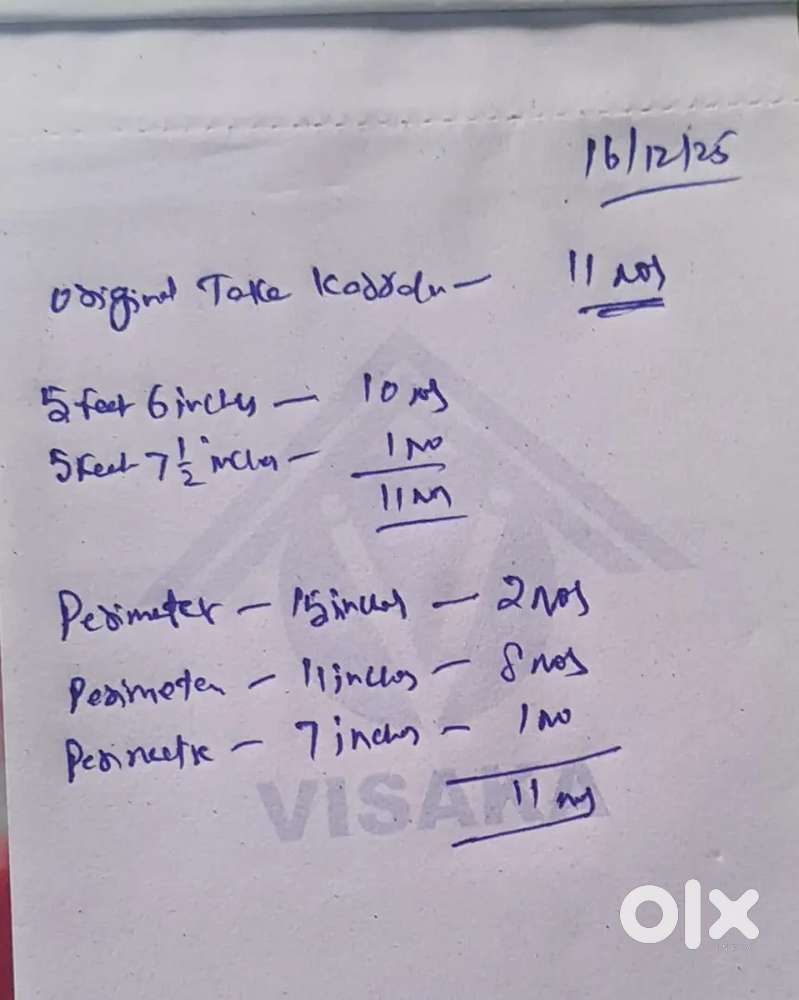 16/12/25
Original Take Karralu - 11 nos
5 feet 6 inches - 10 nos
5 feet 7 1/2 inches - 1 no
11 nos
Perimeter - 15 inches - 2 nos
Perimeter - 11 inches - 8 nos
Perimeter - 7 inches - 1 no
11 nos
VISAKA
olx
INDIA